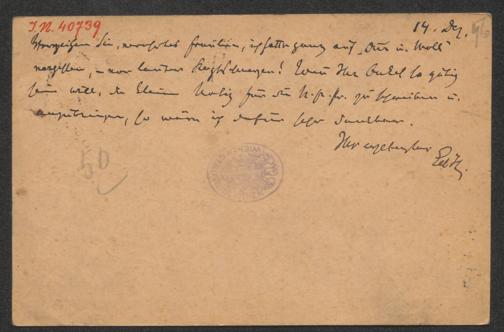 I.N. 40739
14. Dez.
Verzeihen Sie, verehrtes Fräulein, ich hatte ganz auf „Dur u. Moll“
vergessen, vor lauter Wenn Ihr Onkel so gütig
sein will, die kleine Notiz für die N.fr.Pr. zu schreiben u.
anzubringen, so wäre ich dafür sehr dankbar.
Ihr ergebenster
50